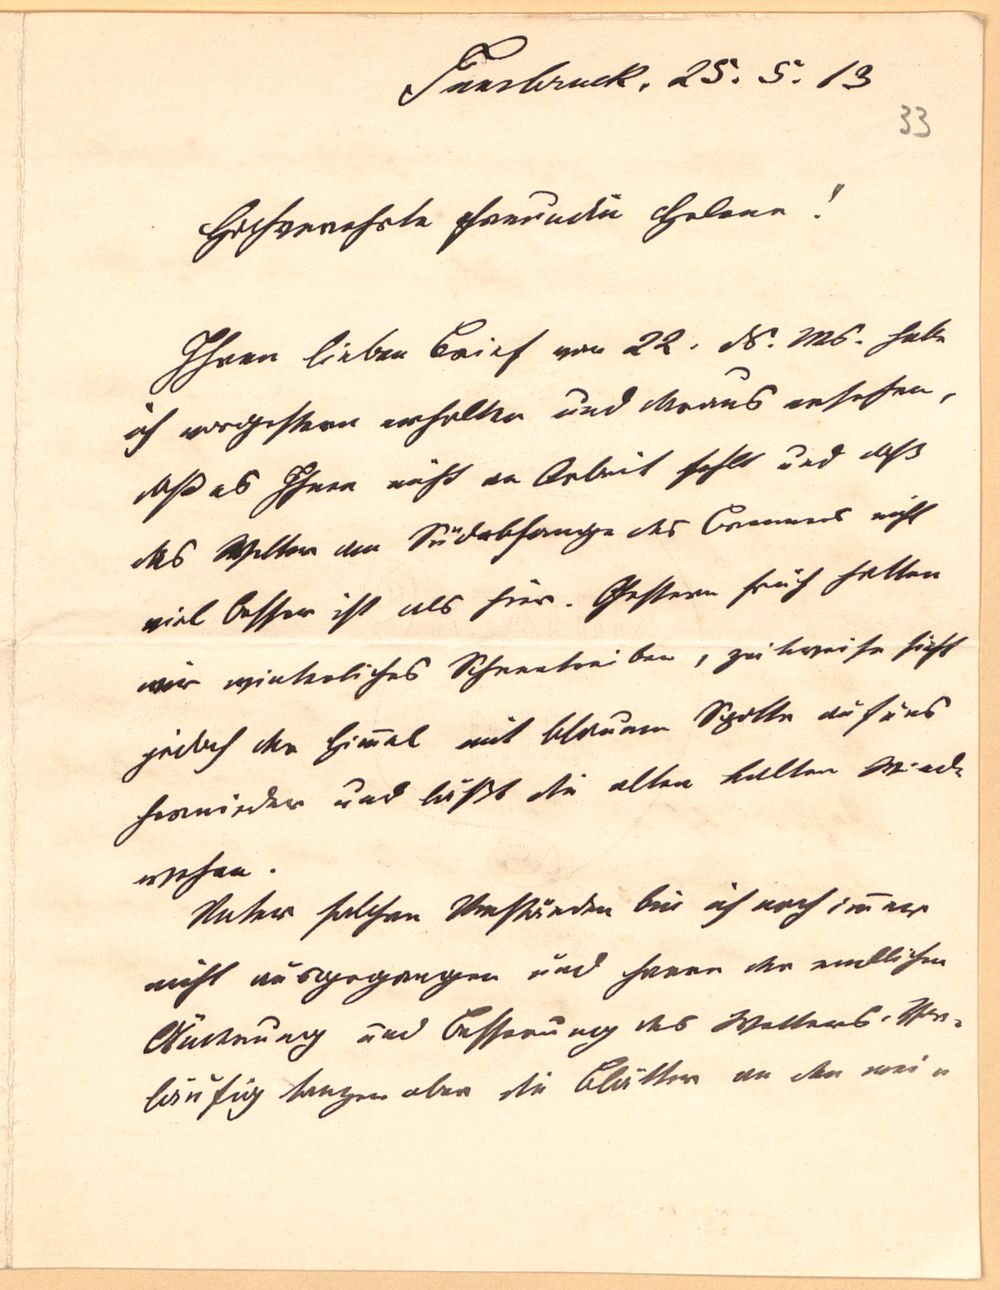 Innsbruck, 25. 5. 13
33
Hochverehrte Freundin Helene!
Ihren lieben Brief vom 22. ds. Ms. habe
ich vorgestern erhalten und daraus ersehen,
daß es Ihnen nicht an Arbeit fehlt und daß
das Wetter am Südabhange des Brenners nicht
viel besser ist als hier. Gestern früh hatten
wir winterliches Schneetreiben, zeitweise sieht
jedoch der Himmel mit blauem Spotte auf uns
hernieder und läßt die alten kalten Winde
wehen.
Unter solchen Umständen bin ich noch immer
nicht ausgegangen und harre der endlichen
Änderung und Besserung des Wetters. Vor-
läufig tanzen aber die Blätter an den